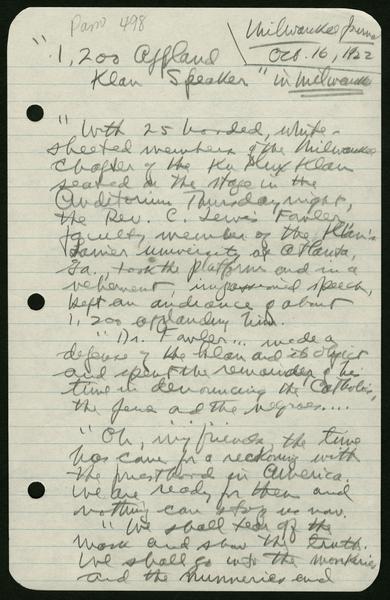 Pam 498
Milwaukee Journal
Oct. 16, 1922
"1,200 Applaud
Klan Speaker" in Milwaukee
"With 25 hooded, white-
sheeted members of the Milwaukee
chapter of the Ku Klux Klan
seated on the stage in the
Auditorium Thursday night,
the Rev. C. Lewis Fowler,
faculty member of the Klan's
former university at Atlanta,
Ga., took the platform and in a
vehement, impassioned speech,
kept an audience of about
1,200 applauding him.
"Dr. Fowler... made a
defense of the Klan and its object
and spent the remainder of his
time in denouncing the Catholics,
the Jews and the negroes....
"Oh, my friends, the time
has come for a reckoning with
the priesthood in America.
We are ready for them and
nothing can stop us now.
"We shall tear off the
mask and show the truth.
We shall go into the monasteries
and the nunneries and